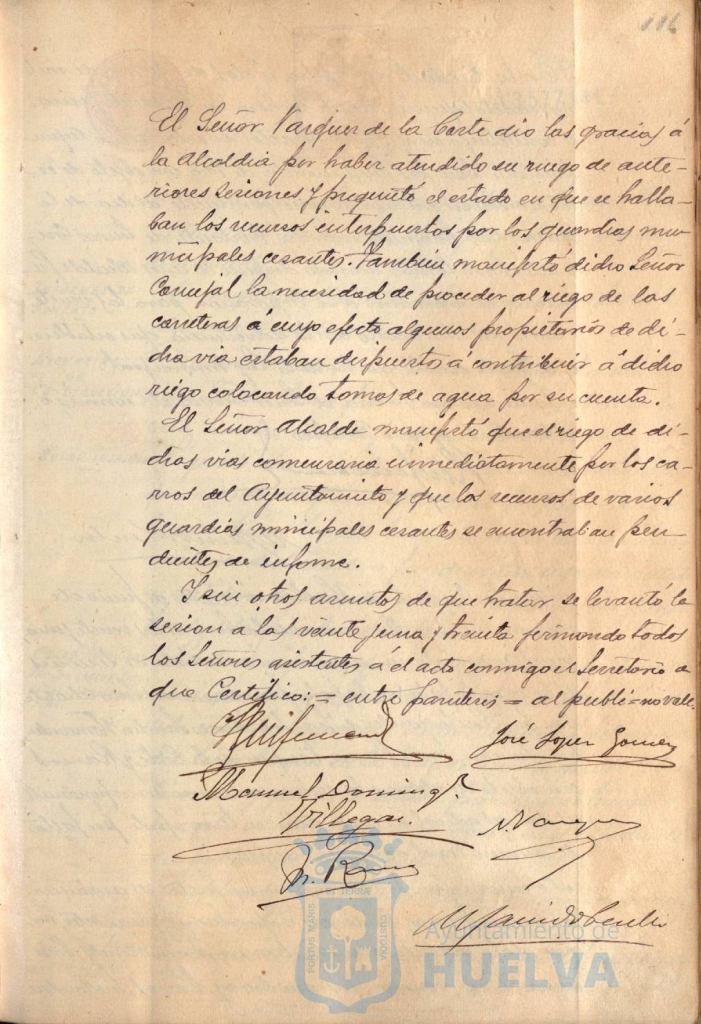 116
El Señor Vazquez de la Corte dio las gracias á
la Alcaldia por haber atendido su ruego de ante-
riores sesiones y preguntó el estado en que se halla-
ban los recursos interpuestos por los guardias mu-
nicipales cesantes. También manifestó dicho Señor
Concejal la necesidad de proceder al riego de las
carreteras á cuyo efecto algunos propietarios de di-
cha via estaban dispuestos á contribuir á dicho
riego colocando tomas de agua por su cuenta.
El Señor Alcalde manifestó que el riego de di-
chas vias comenzaria inmediatamente por los ca-
rros del Ayuntamiento y que los recursos de varios
guardias municipales cesantes se encontraban pen-
dientes de informe.
Y sin otros asuntos de que tratar se levantó la
sesion a las veinte y una y treinta firmando todos
los Señores asistentes á el acto conmigo el Secretario de
que Certifico: = entre parentesis = al publi = no vale.
José Lopez Gomez
Manuel Doming.
Villegas.
PORTUS MARIS ET TERRAE CUSTODIA
Ayuntamiento de
HUELVA